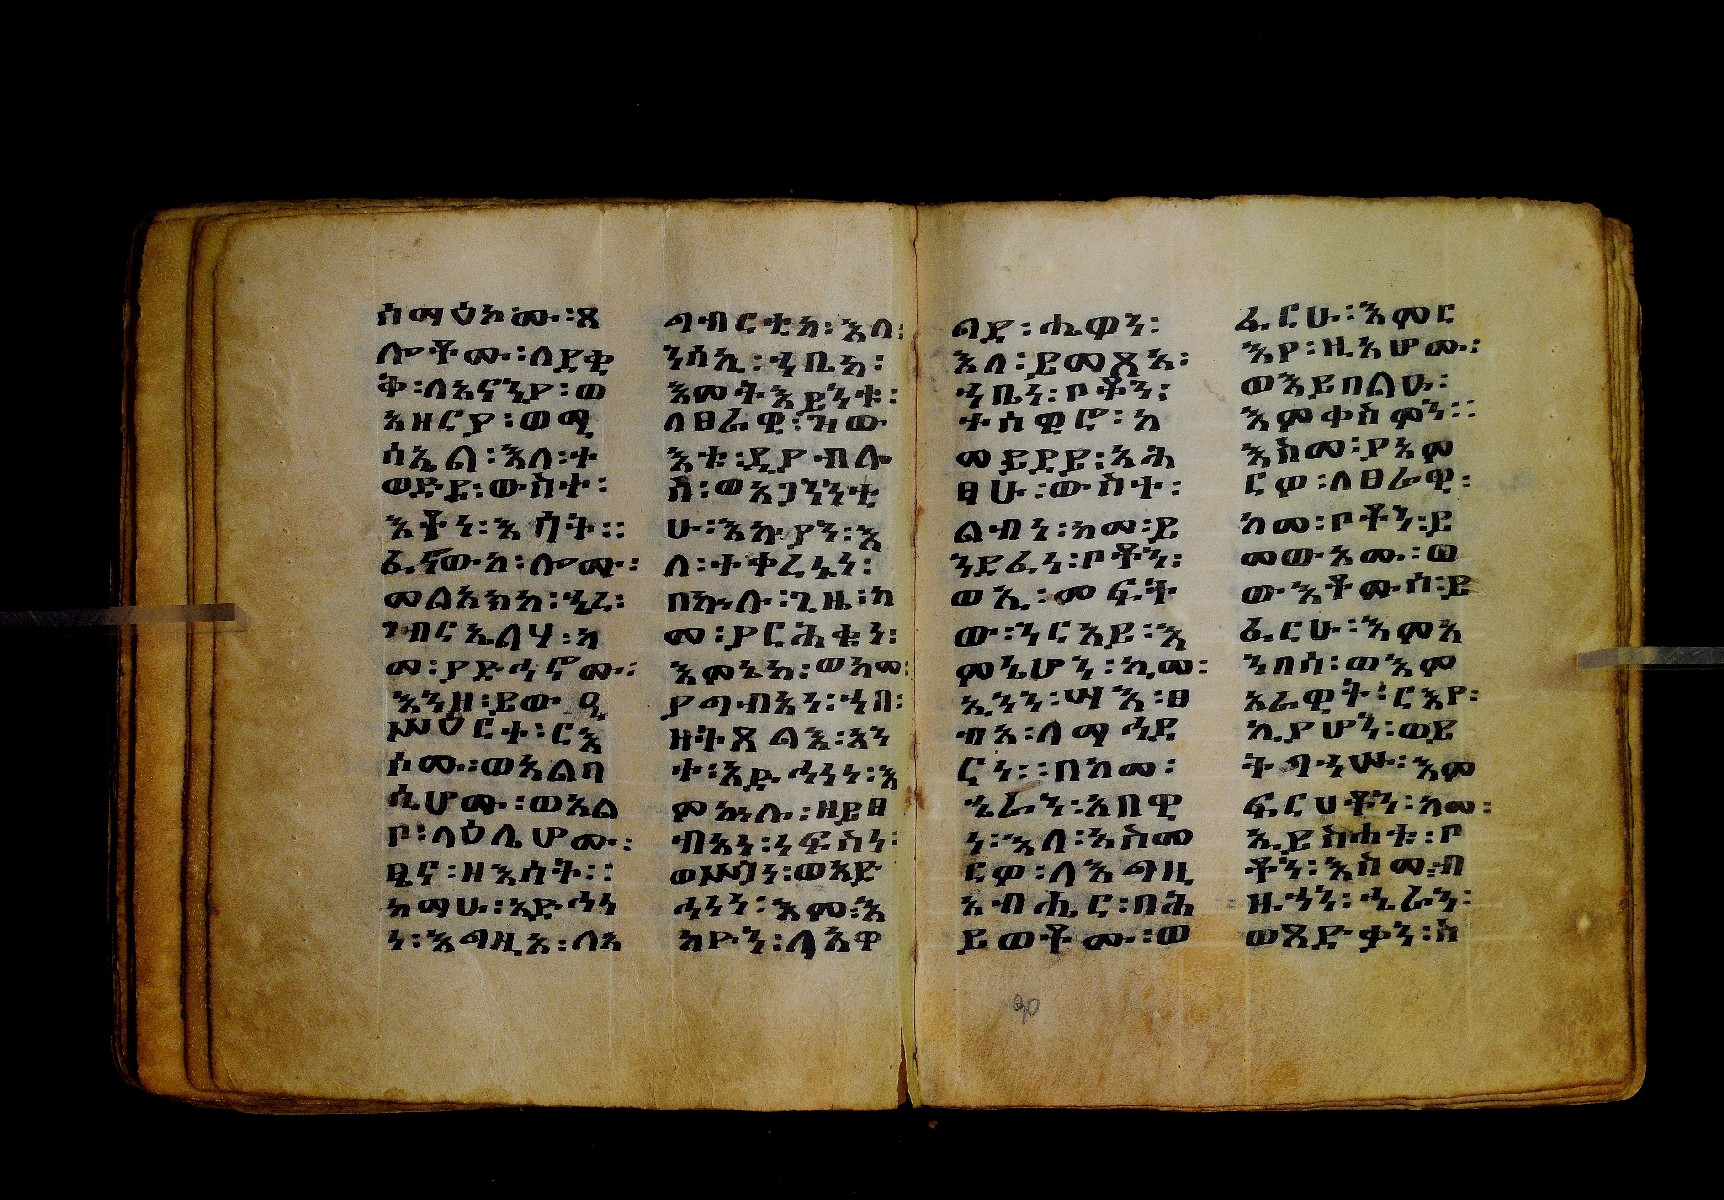 ሰማዕኮሙ፡ጸ
ሎቶሙ፡ለደቂ
ቅ፡ለአናንያ፡ወ
አዘርያ፡ወሚ
ሳኤል፡እለ፡ተ
ወድዩ፡ውስተ፡
እቶነ፡እሳት።
ፈኖውከ፡ሎሙ፡
መልአከከ፡ኄረ፡
ገብርኤልሃ፡ከ
መ፡ያድኅኖሙ፡
እንዘ፡ይውዒ
ሥዕርተ፡ርእ
ሶሙ፡ወአልባ
ሲሆሙ፡ወአል
ቦ፡ለዕሊሆሙ፡
ጼና፡ዘእሳት።
ከማሁ፡አድኅነ
ነ፡እግዚኦ፡ለአ
ግብርቲከ፡እለ፡
ንሰኢ፡ኀቤከ፡
እመትእይንቱ፡
ለፀራዊ፡ዝው
እቱ፡ዲያብሎ
ስ፡ወአጋንንቲ
ሁ፡እኩያን፡እ
ለ፡ተቀረኑነ፡
በኵሉ፡ጊዜ፡ከ
መ፡ያርሕቁነ፡
እምኔከ፡ወከመ፡
ያግብአነ፡ኀበ፡
ዘትጸልእ፡አን
ተ፡አድኅነነ፡እ
ምኵሉ፡ዘይፀ
ብአነ፡ነፍስነ፡
ወሥጋነ፡ወአድ
ኅነነ፡እም፡እ
ከዮን፡ለአዋ
ልደ፡ሔዋን፡
እለ፡ይመጽኣ፡
ኀቤነ፡ቦቶን፡
ተሰዊሮ፡አ
መይደይ፡አሕ
ፀሁ፡ውስተ፡
ልብነ፡ከመ፡ይ
ንድፈነ፡ቦቶን፡
ወኢ፡መፍት
ው፡ነርአይ፡እ
ምኔሆን፡ኢመ፡
ኢንነ፡ሣእ፡ፀ
ብአ፡ለማኅደ
ርነ።በከመ፡
ኄራን፡አበዊ
ነ፡እለ፡አስመ
ርዎ፡ለእግዚ
አብሔር፡በሕ
ይወቶሙ፡ወ
ፈርሁ፡እምር
እየ፡ዚአሆሙ፡
ወእይበልሁ፡
እምቀስምን።
እስመ፡ያአም
ርዎ፡ለፀራዊ፡
ከመ፡ቦቶን፡ይ
መውኦሙ፡ወ
ውእቶሙሰ፡ይ
ፈርሁ፡እምአ
ንበሳ፡ወእም
አራዊት፡ርእየ፡
ኢያሆን፡ወይ
ትግኅሡ፡እም
ፍርሀቶን፡ከመ፡
ኢይስሐቱ፡ቦ
ቶን፡እስመ፡ብ
ዙኃነ፡ኄራን፡
ወጻድቃን፡ስ